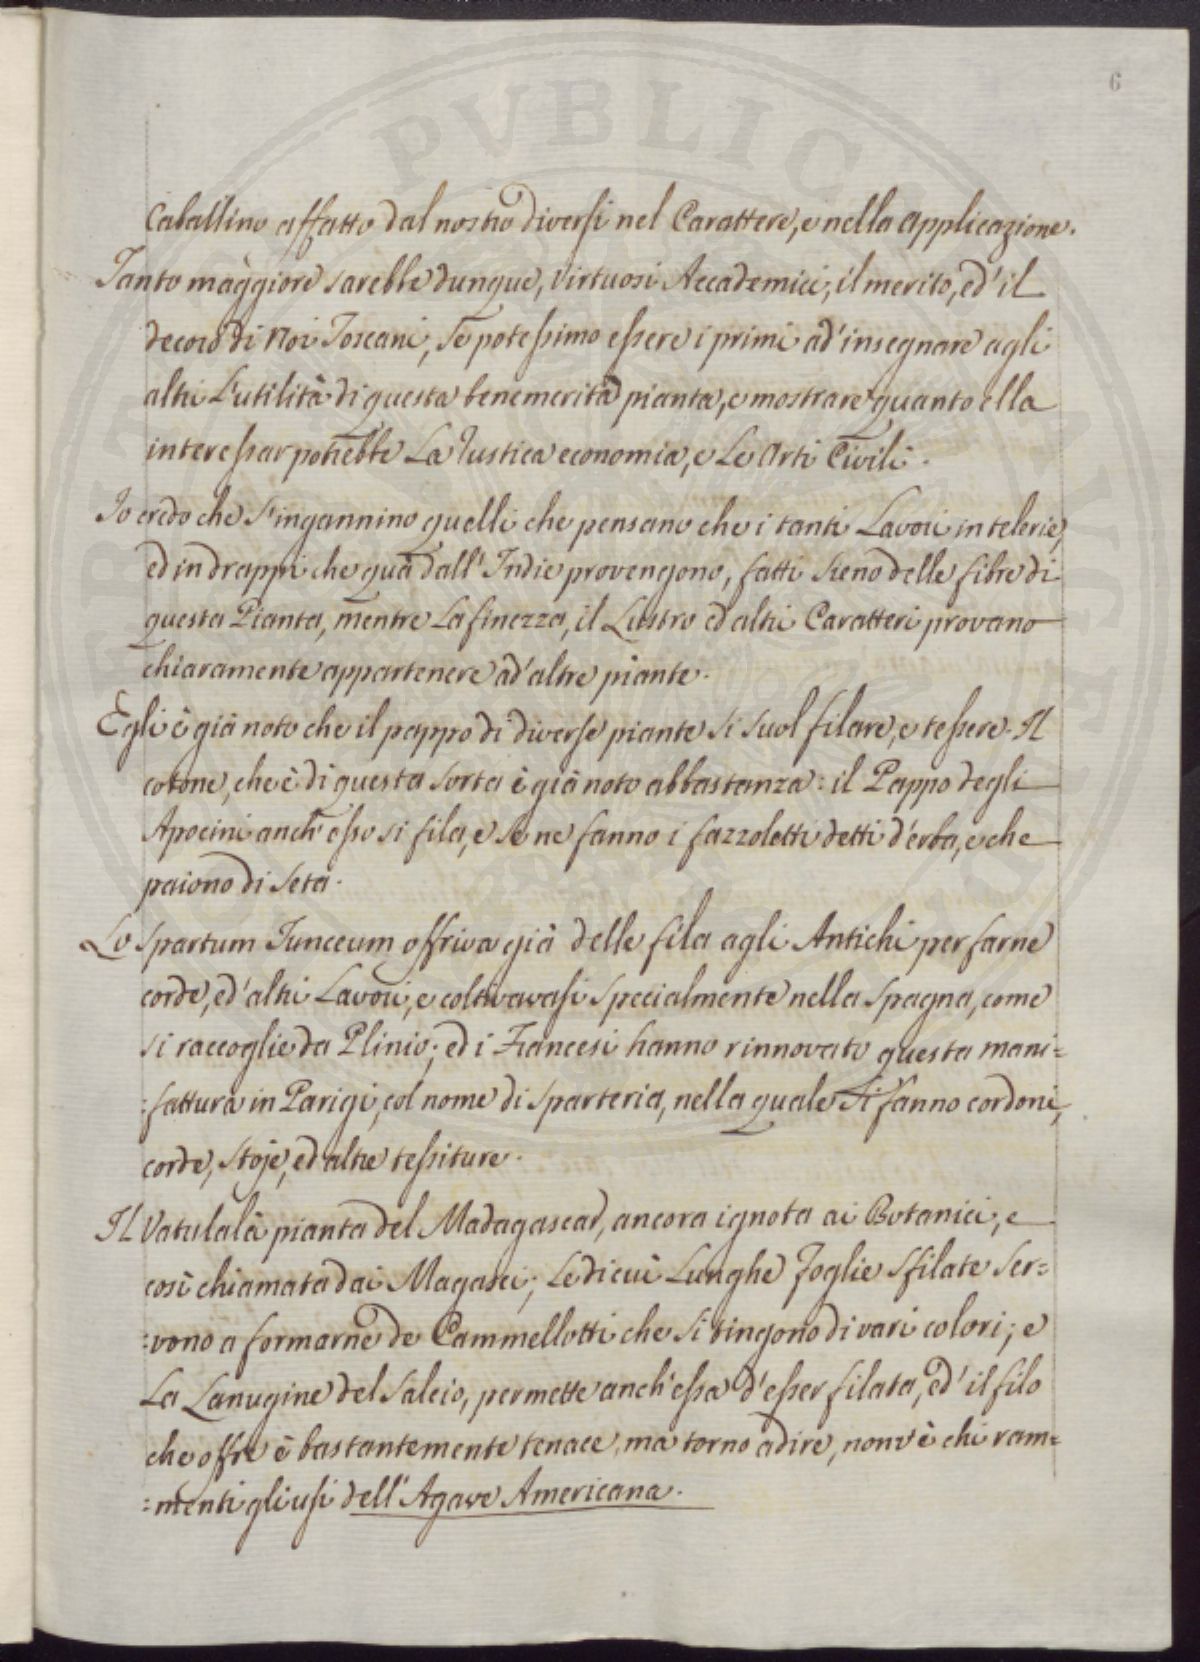 6
Caballino affatto dal nostro diversi nel Carattere, e nella Applicazione.
Tanto maggiore sarebbe dunque, Virtuosi Accademici, il merito, ed' il
decoro di Noi Toscani, se potessimo essere i primi ad' insegnare agli
altri L'utilità di questa benemerita pianta, e mostrare quanto ella
interessar potrebbe La Rustica economia, e Le Arti Civili.
Io credo che s'ingannino quelli che pensano che i tanti Lavori in telerie,
ed in drappi che quà dall' Indie provengono, fatti sieno delle fibre di
questa Pianta, mentre La finezza, il Lustro ed altri Caratteri provano
chiaramente appartenere ad' altre piante.
Egli è già noto che il pappo di diverse piante si suol filare, e tessere. Il
cotone, che è di questa sorta è già noto abbastanza: il Pappo degli
Apocini anch' esso si fila, e se ne fanno i fazzoletti detti d'erba, e che
paiono di Seta.
Lo Spartum Junceum offriva già delle fila agli Antichi per farne
corde, ed' altri Lavori, e coltivavasi specialmente nella Spagna, come
si raccoglie da Plinio; ed i Francesi hanno rinnovato questa mani=
=fattura in Parigi, col nome di Sparteria, nella quale si fanno cordoni,
corde, stoje, ed altre tessiture.
Il Vatulalà pianta del Madagascar, ancora ignota ai Botanici, e
così chiamata dai Magasci; Le di cui Lunghe foglie sfilate Ser=
=vono a formarne de Cammellotti che si tingono di vari colori; e
La Lanugine del Salcio, permette anch'essa d'esser filata, ed' il filo
che offre è bastantemente tenace, ma torno a dire, non v'è chi ram=
=menti gli usi dell' Agave Americana.
PVBLIC